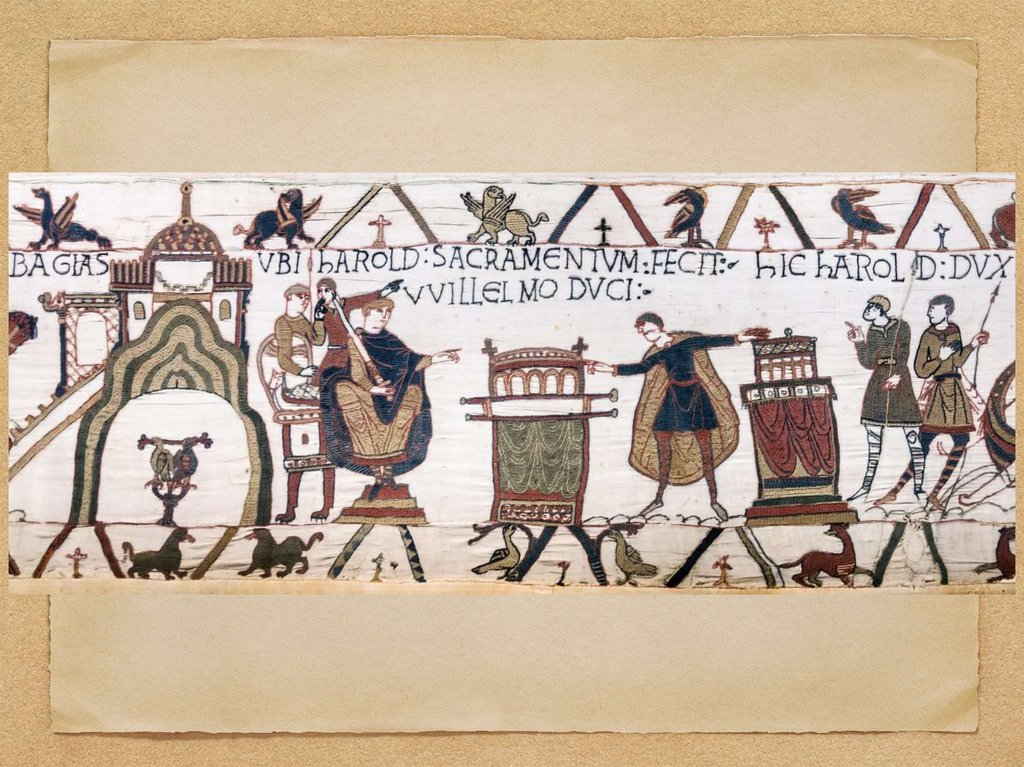 BAGIAS VBI hAROLD: SACRAMENTVM: FECIT:· hIC hAROLD: DVX
VVILLELMO DVCI:·